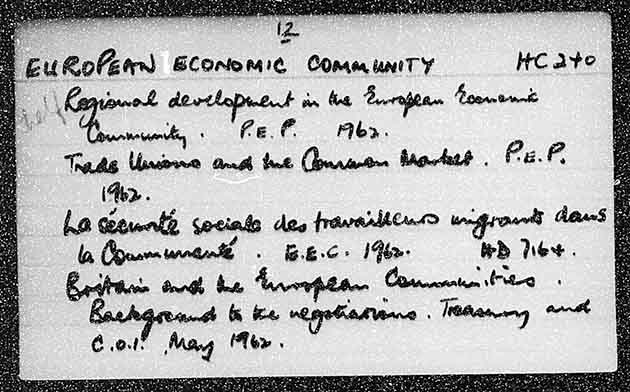 12
EUROPEAN ECONOMIC COMMUNITY HC 240
Regional development in the European Economic
Community. P.E.P. 1962.
Trade Unions and the Common Market. P.E.P.
1962.
La sécurité sociale des travailleurs migrants dans
la Communauté. E.E.C. 1962. HD 7164.
Britain and the European Communities.
Background to the negotiations. Treasury and
C.O.I. May 1962.